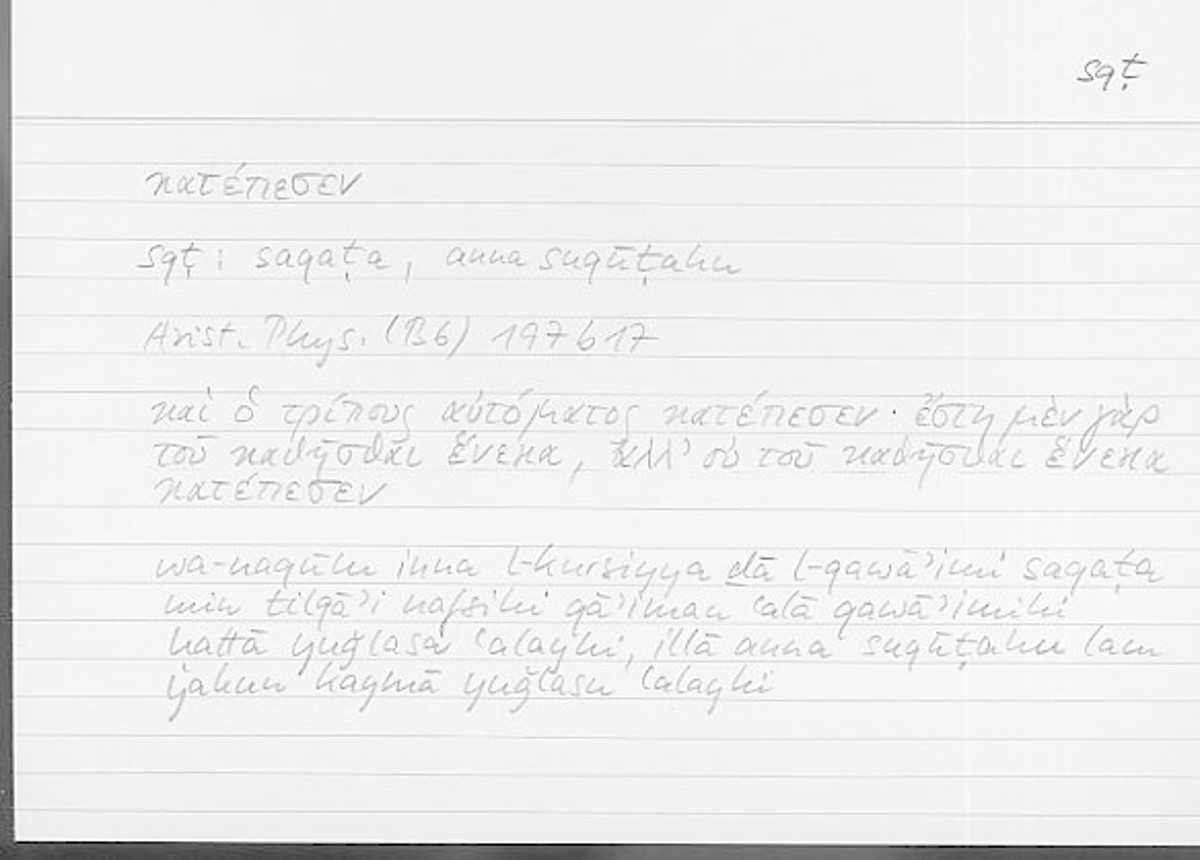 sqṭ
κατέπεσεν
sqṭ: saqaṭa, anna suqūṭahu
Arist. Phys. (B6) 197b17
καὶ ὁ τρίπους αὐτόματος κατέπεσεν· ἔστη μὲν γὰρ
τοῦ καθῆσθαι ἕνεκα, ἀλλ’ οὐ τοῦ καθῆσθαι ἕνεκα
κατέπεσεν
wa-naqūlu inna l-kursiyya ḏā l-qawāʾimi saqaṭa
min tilqāʾi nafsihi qāʾiman ʿalā qawāʾimihi
hattā yuǧlasa ʿalayhi, illā anna suqūṭahu lam
yakun kaymā yuǧlasu ʿalayhi